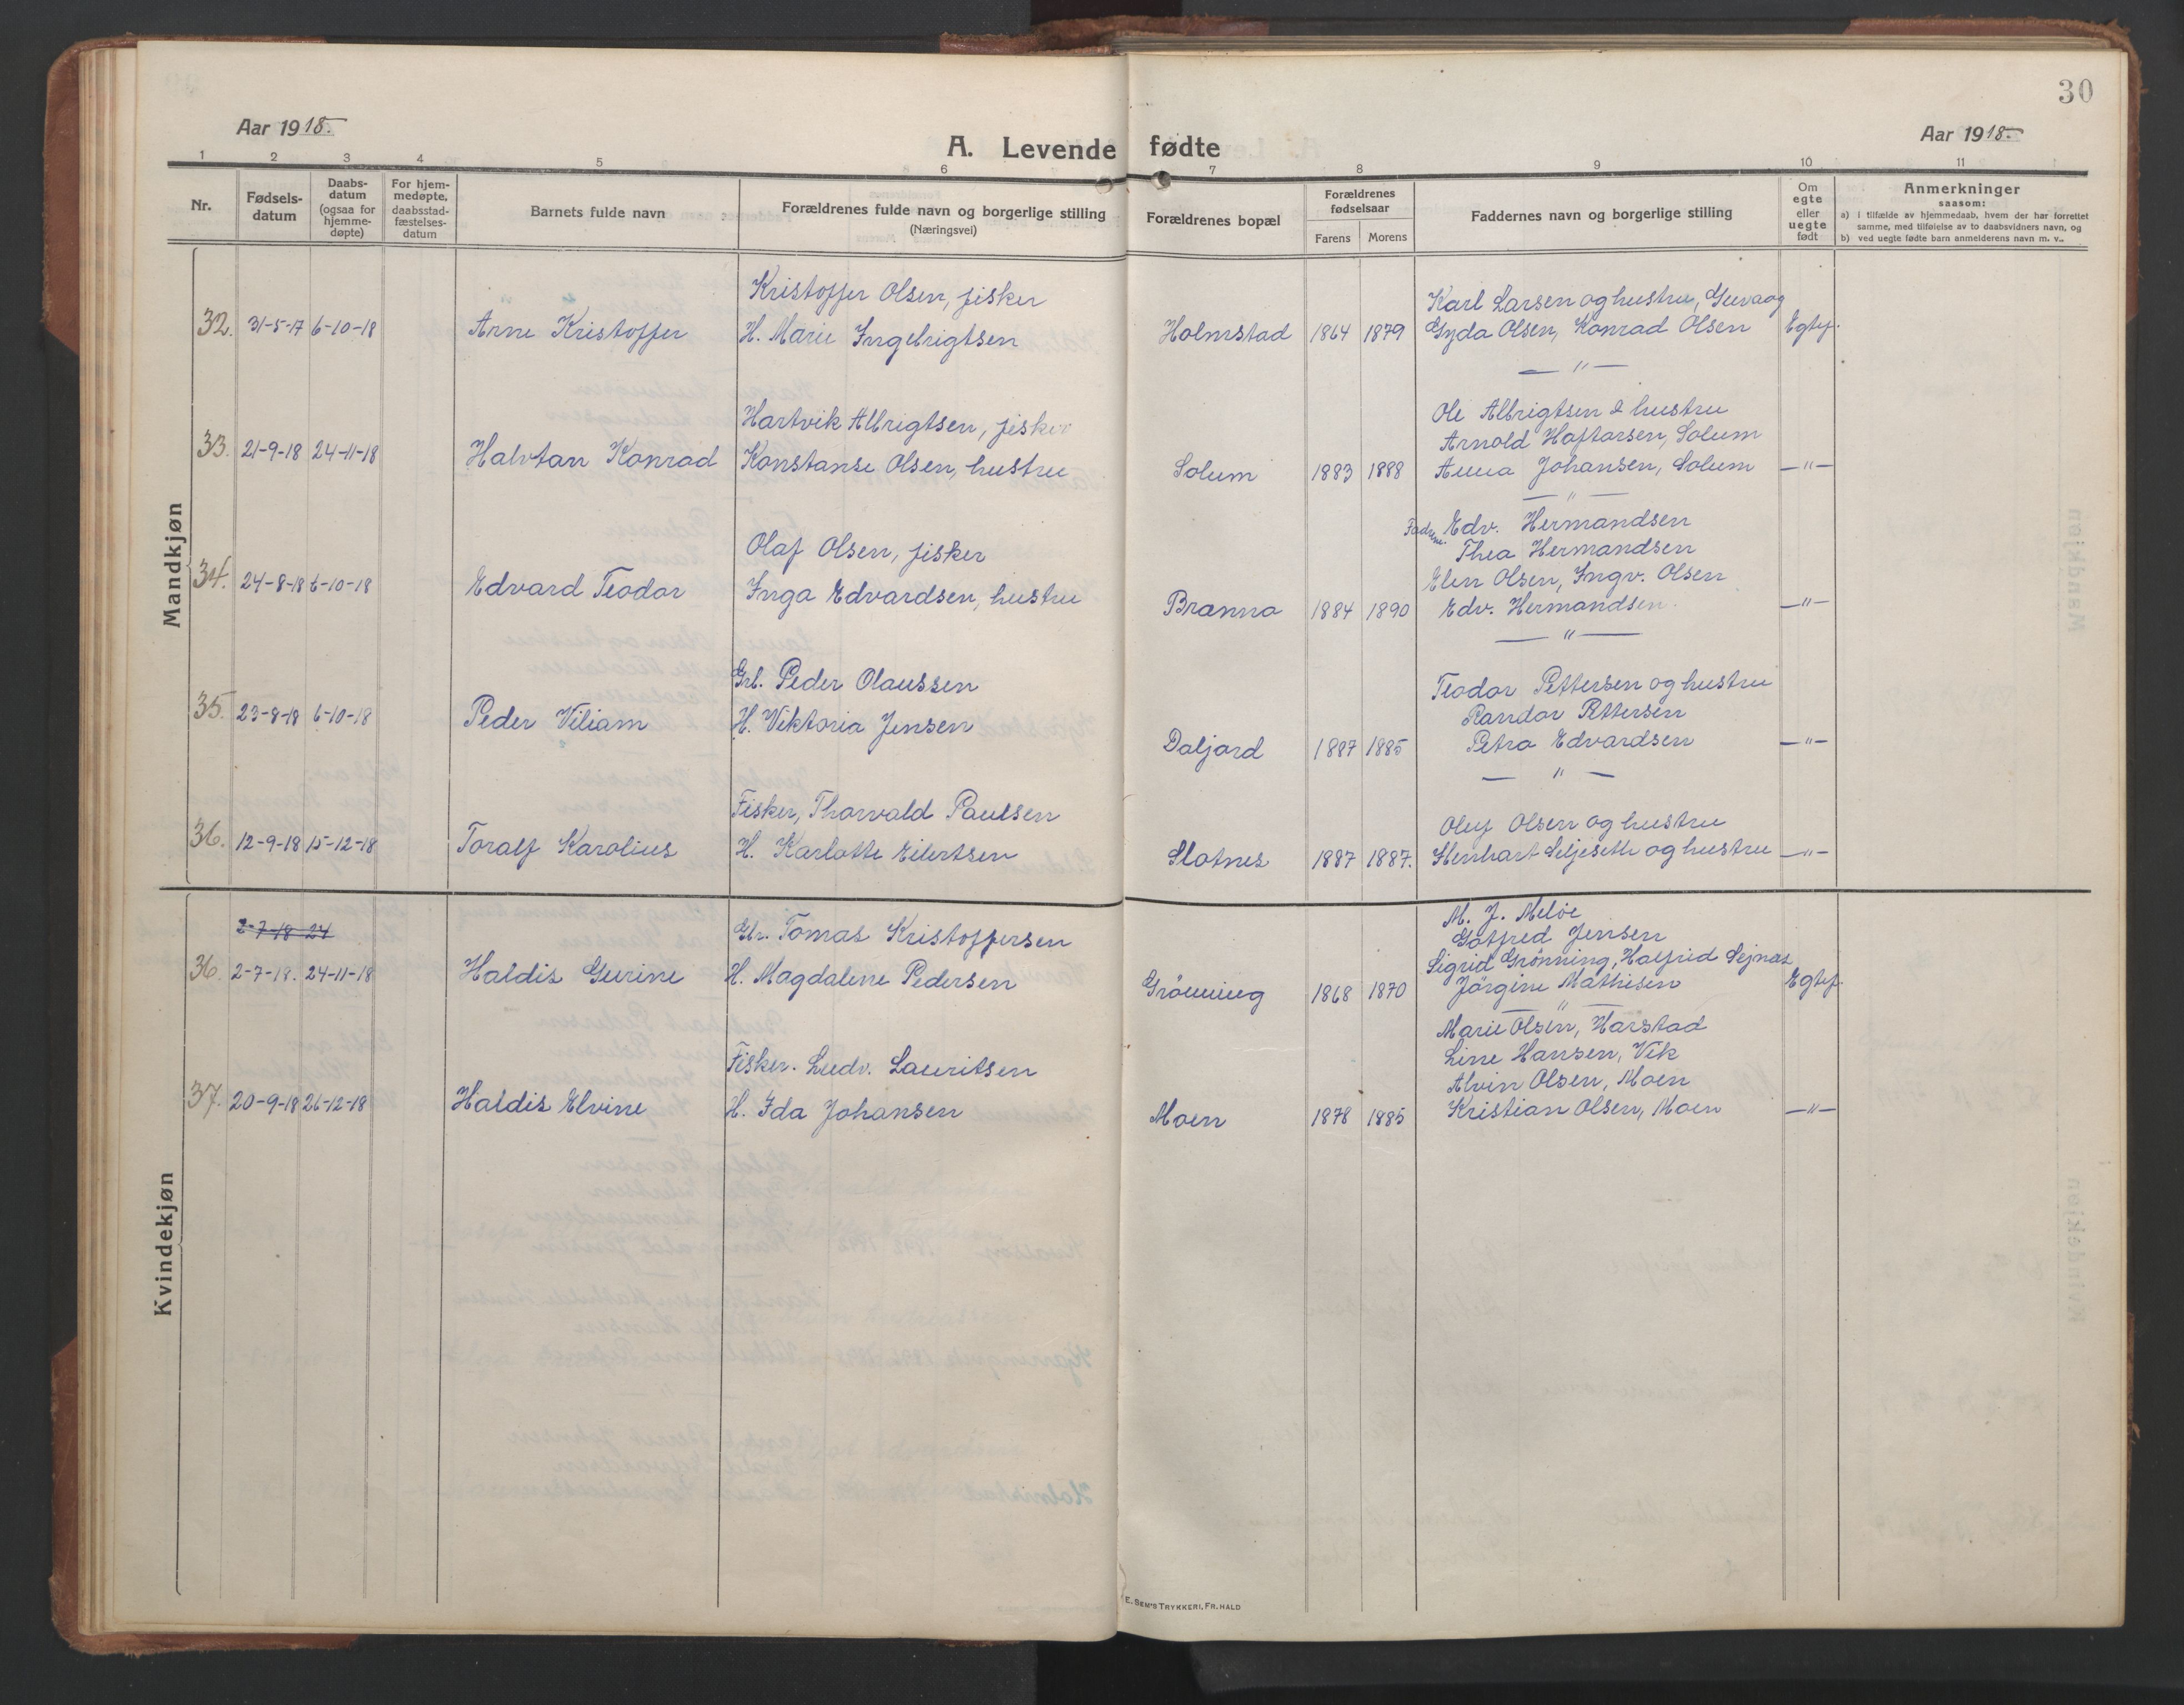 30
Aar 1918.
A. Levende fødte
Aar 1918
1 2 3 4 5 6 7 8 9 10 11
Nr.
Fødsels-
datum
Daabs-
datum
(ogsaa for
hjemme-
døpte)
For hjem-
medøpte,
daabsstad-
fæstelses-
datum
Barnets fulde navn
Forældrenes fulde navn og borgerlige stilling
(Næringsvei)
Forældrenes bopæl
Forældrenes
fødselsaar
Farens Morens
Faddernes navn og borgerlige stilling
Om
egte
eller
uegte
født
Anmerkninger
saasom:
a) i tilfælde av hjemmedaab, hvem der har forrettet
samme, med tilføielse av to daabsvidners navn, og
b) ved uegte fødte barn anmelderens navn m. v..
Mandkjøn
Kristoffer Olsen, fisker Karl Larsen og hustru,
32. 31-5-17 6-10-18 Arne Kristoffer H. Marie Ingebrigtsen Holmstad 1864 1879 Gyda Olsen, Konrad Olsen Egtef.
— " —
Hartvik Albrigtsen, fisker Ole Albrigtsen & hustru
Arnold Haftorsen, Solum
33. 21-9-18 24-11-18 Halvtan Konrad Konstanse Olsen, hustru Solum 1883 1888 Anna Johansen, Solum — " —
— " —
Edv. Hermandsen
Olaf Olsen, fisker Thea Hermandsen
Elen Olsen, Ingv. Olsen
34. 24-8-18 6-10-18 Edvard Teodor Inga Edvardsen, hustru Brænna 1884 1890 Edv. Hermandsen. — " —
— " —
Grb. Peder Olaussen Teodor Pettersen og hustru
Randor Pettersen
35. 23-8-18 6-10-18 Peder Viliam H. Viktoria Jensen Daljord 1887 1885 Petra Edvardsen — " —
— " —
Fisker, Thorvald Paulsen Oluf Olsen og hustru
36. 12-9-18 15-12-18 Toralf Karolius H. Karlotte Eilertsen Slotnes 1887 1887. Seljeseth og hustru — " —
Kvindekjøn
2-7-18 24 Gbr. Tomas Kristoffersen M. J. Meløe
Gotfred Jensen
Sigrid Grønning, Halfrid Sejnæs
36. 2-7-18. 24-11-18 Haldis Gurine H. Magdalene Pedersen Grönning 1868 1870 Jörgine Mathisen Egtef.
— " —
Marie Olsen, Harstad
Fisker. Ludv. Lauritsen Line Hansen, Vik
Alvin Olsen, Moen
37. 20-9-18 26-12-18 Haldis Elvine H. Ida Johansen Moen 1878 1885 Kristian Olsen, Moen — " —
E. SEM'S TRYKKERI, FR. HALD